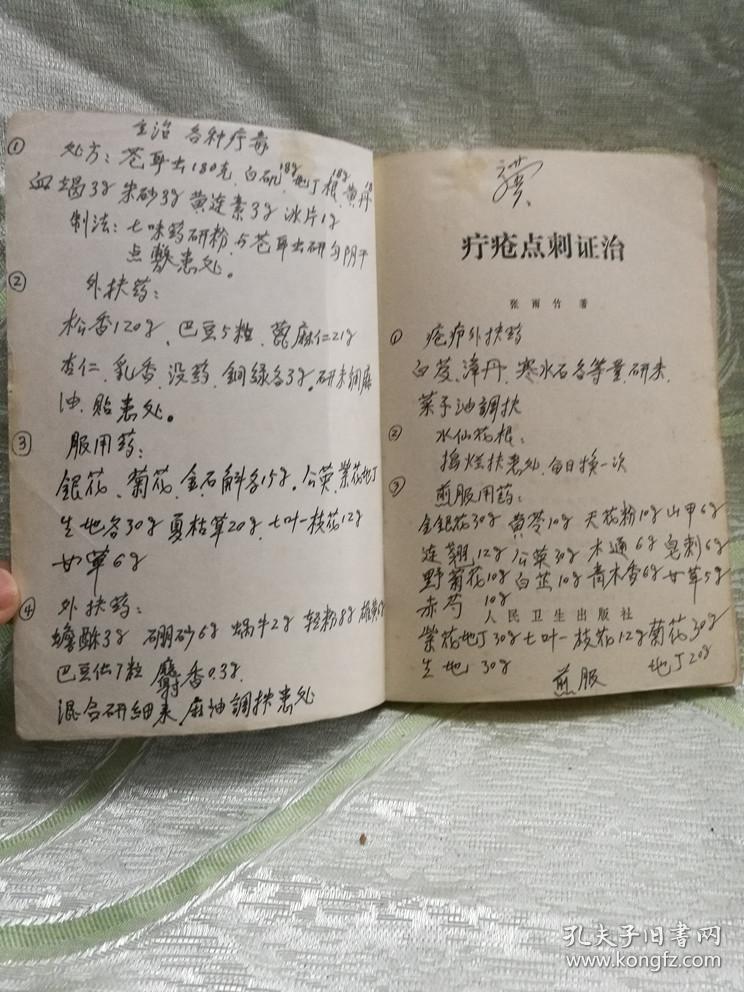 主治 各种疔毒
① 处方：苍耳虫180克、白矾18g 地丁根18g 黄丹18
血竭3g 朱砂3g 黄连素3g 冰片1g
制法：七味药研粉，与苍耳虫研匀阴干
点敷患处。
② 外扶药：
松香120g、巴豆5粒、蓖麻仁21g
杏仁、乳香、没药、銅緑各3g。研末調麻
油、貼患处。
③ 服用药：
銀花、菊花、金石斛各15g。公英、紫花地丁
生地各30g 夏枯草20g、七叶一枝花12g
甘草6g
④ 外扶药：
蟾酥3g 硼砂6g 蜗牛2g 轻粉8g 雄黄
巴豆仁7粒 麝香0.3g
混合研細末 麻油調扶患处
疔疮点刺证治
张雨竹 著
① 疮疖外扶药
白芨、漳丹、寒水石各等量、研末
菜子油調扶
② 水仙花根：
捣烂扶患处、每日换一次
③ 煎服用药：
金銀花30g 黄芩10g 天花粉10g 山甲6g
连翘12g 公英30g 木通6g 皂刺6g
野菊花10g 白芷10g 青木香6g 甘草5g
赤芍 10g
人民卫生出版社
紫花地丁30g 七叶一枝花12g 菊花30g
生地 30g 地丁20g
煎服
孔夫子旧书网
www.kongfz.com